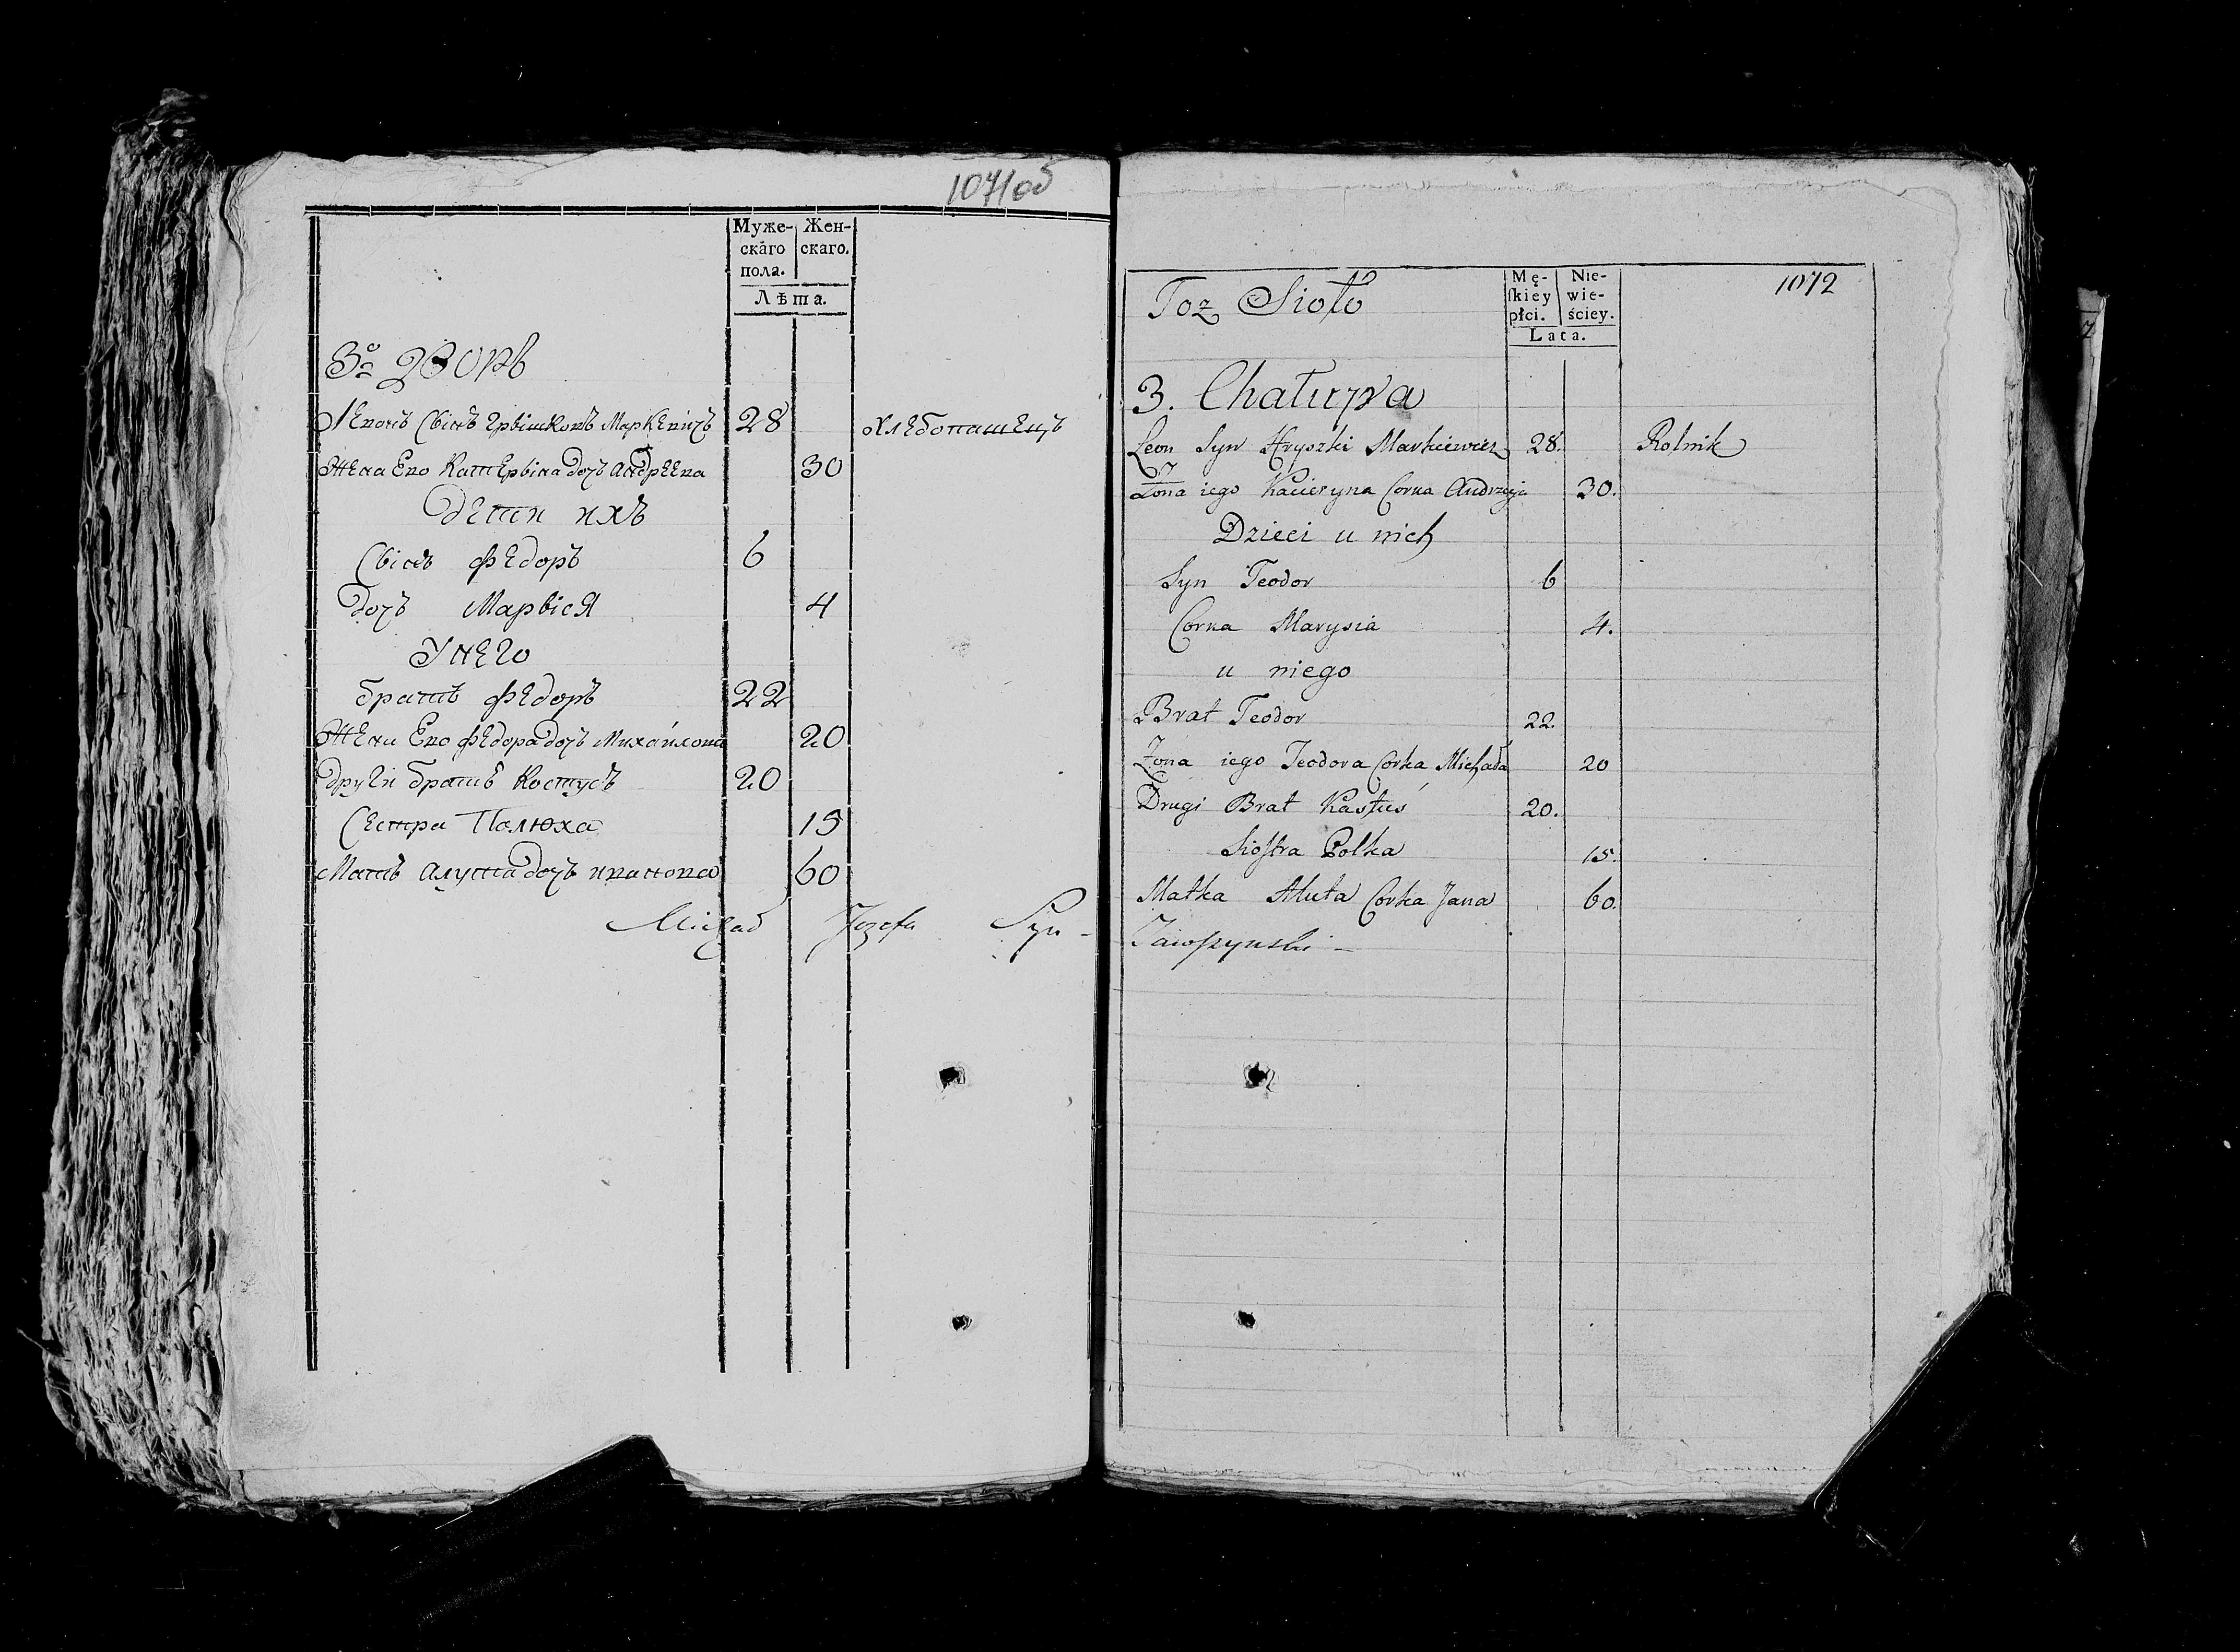 1071об
Муже- Жен-
скаго скаго.
пола.
Лѣта.
3º дворъ
Леонъ Сынъ Грышковъ Маркевичъ 28 хлебопашецъ
Жена Ево Катерына дочъ Андреева 30
дети ихъ
Сынъ Федоръ 6
дочъ Марыся 4
У него
братъ Федоръ 22
Жена Ево Федора дочъ Михайлова 20
други братъ Костусъ 20
Сестра Палюха 15
Матъ Алута дочъ Иванова 60
Michał Jozefa Syn -
1072
Toż Sioło
Mę- Nie-
ſkiey wie-
płci. ściey.
Lata.
3. Chatupa
Leon Syn Hryszki Markiewicz 28. Rolnik
Zona iego Kacieryna Corka Andrzeja 30.
Dzieci u nich
Syn Teodor 6
Corka Marysia 4.
u niego
Brat Teodor 22.
Zona iego Teodora Corka Michała 20
Drugi Brat Kastuś 20.
Siostra Polka 15.
Matka Ałuta Corka Jana 60.